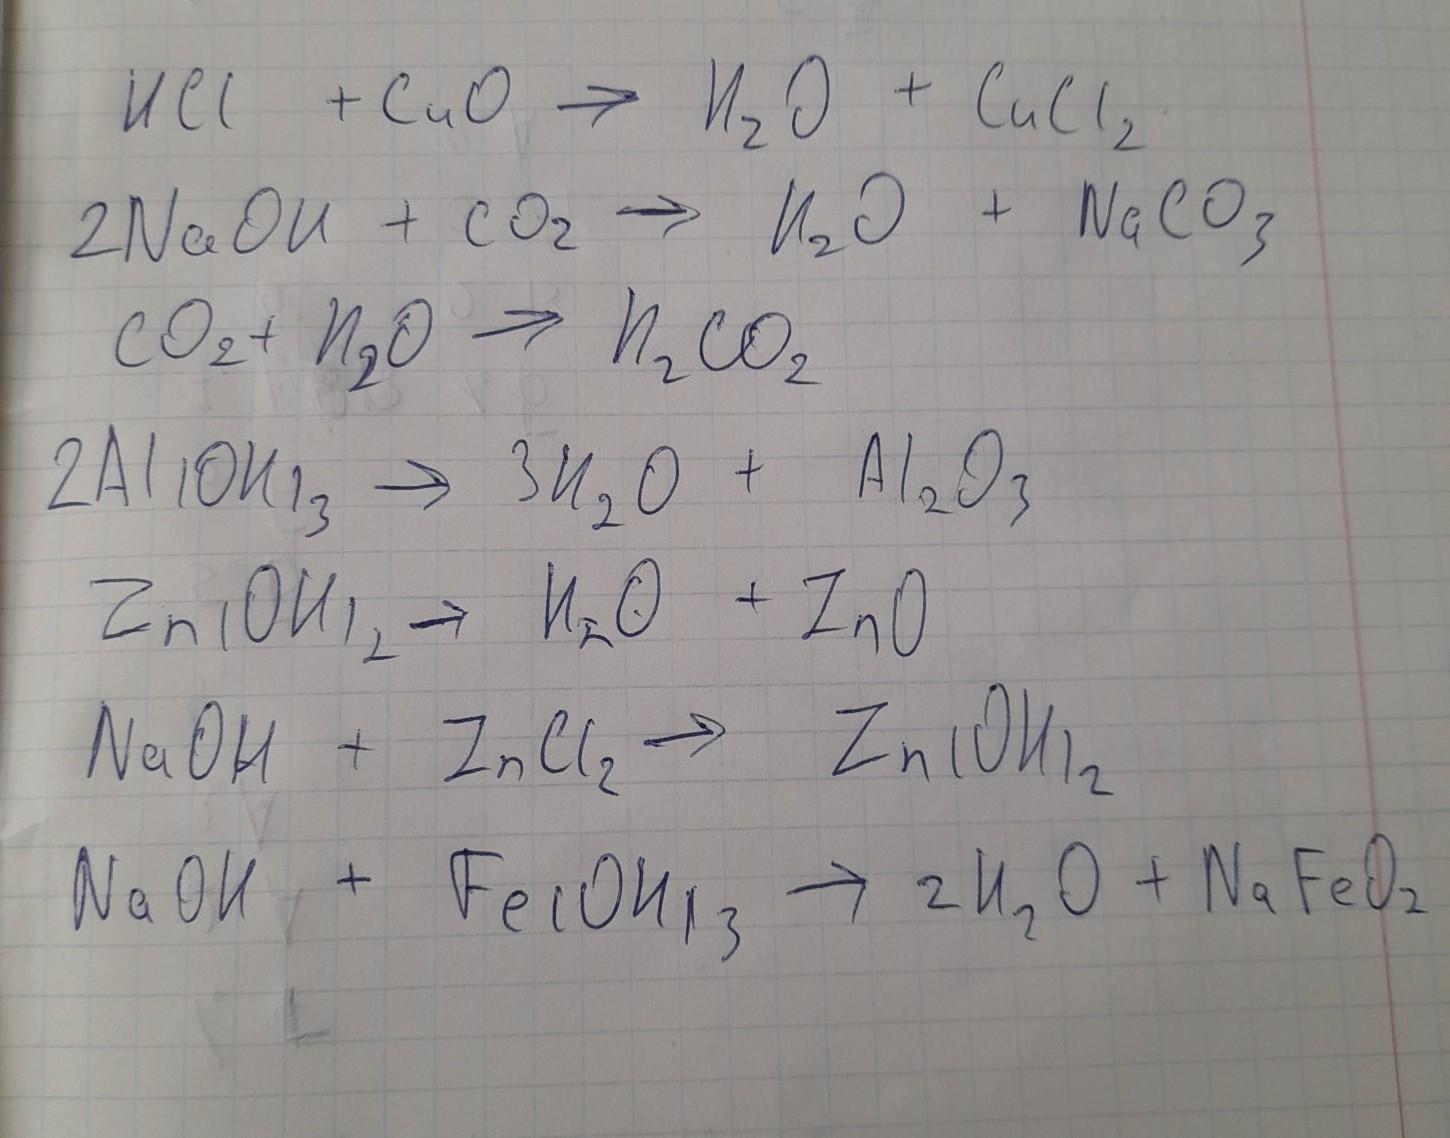 HCl + CuO → H₂O + CuCl₂
2NaOH + CO₂ → H₂O + NaCO₃
CO₂ + H₂O → H₂CO₂
2Al(OH)₃ → 3H₂O + Al₂O₃
Zn(OH)₂ → H₂O + ZnO
NaOH + ZnCl₂ → Zn(OH)₂
NaOH + Fe(OH)₃ → 2H₂O + NaFeO₂